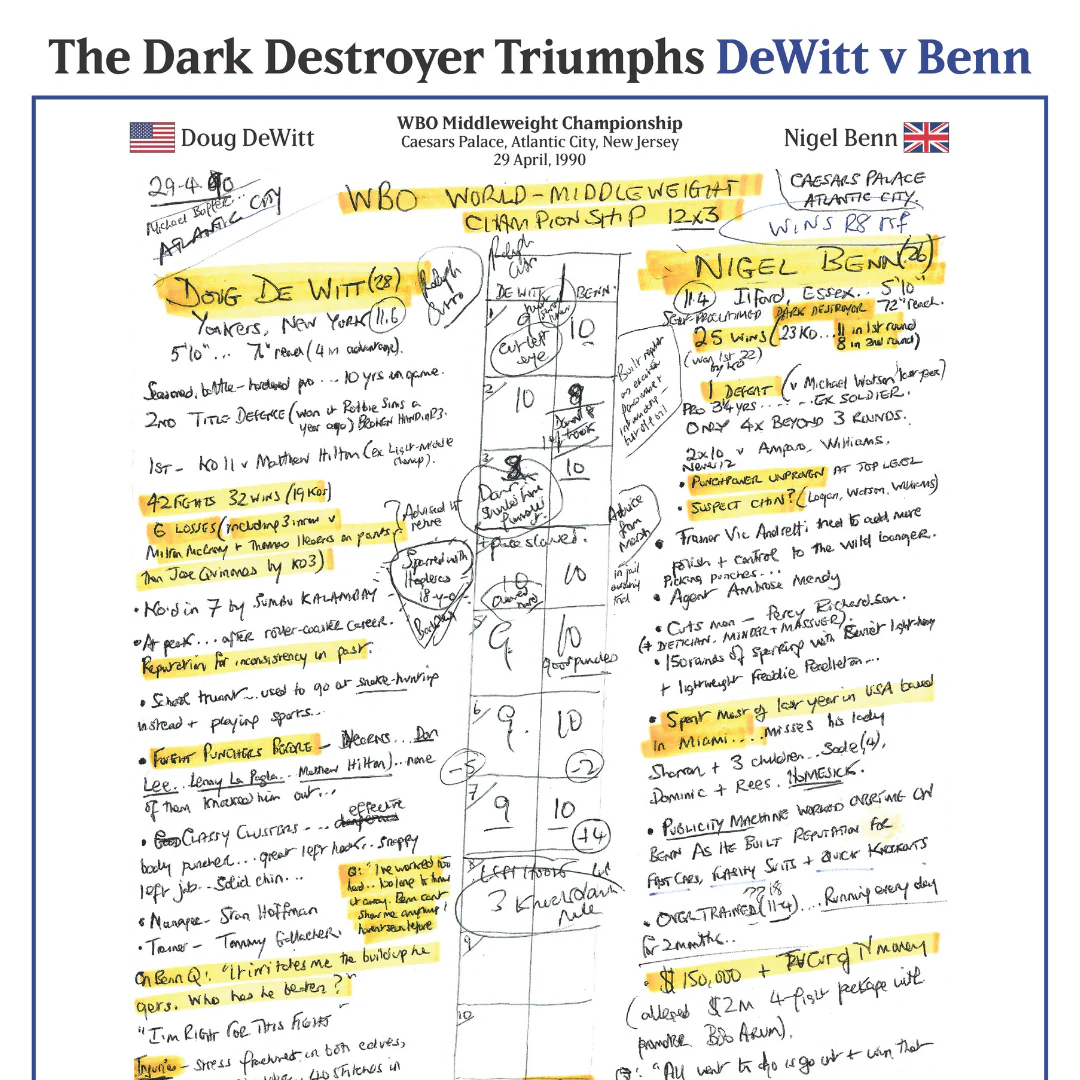 The Dark Destroyer Triumphs DeWitt v Benn
Doug DeWitt
WBO Middleweight Championship
Caesars Palace, Atlantic City, New Jersey
29 April, 1990
Nigel Benn
29-4-90
Michael Buffer...
ATLANTIC CITY
WBO WORLD-MIDDLEWEIGHT
CHAMPIONSHIP 12x3
CAESARS PALACE
ATLANTIC CITY.
WINS R8 rsf
DOUG DE WITT (28)
Yonkers, New York 11.6
5'10"... reach (4 in advantage).
Seasoned, battle-hardened pro... 10 yrs in game.
2ND TITLE DEFENCE (won v Robbie Sims a
year ago) BROKEN HAND IN R3.
1ST - KO 11 v Matthew Hilton (ex Light-middle
champ).
42 FIGHTS 32 WINS (19 KOs)
6 LOSSES (including 3 in row v
Milton McCrory + Thomas Hearns on points
then Joe Quinones by KO3)
Advised to
retire
Sparred with
18-y-o
• KO'd in 7 by SUMBU KALAMBAY
• At peak... after roller-coaster career.
Reputation for inconsistency in past.
• School truant... used to go at snake-hunting
instead + playing sports...
• FOUGHT PUNCHERS BEFORE - HEARNS... Don
Lee... Lenny La Paglia... Matthew Hilton)... none
of them knocked him out...
effective
• CLASSY CLUSTERS...
body puncher... great left hook... snappy
left jab... Solid chin...
• Manager - Stan Hoffman
• Trainer - Tommy Gallagher.
Q: "I've worked too
hard... too long to throw
it away. Benn can't
show me anything I
haven't seen before
On Benn Q: "It irritates me the build up he
gets. Who has he beaten?"
"I'M RIGHT FOR THIS FIGHT"
Injuries - stress fractures in both elbows,
40 stitches in
DE WITT
BENN
1
9
10
Cut left
eye
2
10
8
Down 8
left hook
3
8
10
Down
+ pace slowed.
10
10
5
9
10
good punches
6
9
10
-5
-2
7
9
10
+4
8
3 Knockdown
rule
9
10
Advice
from
NIGEL BENN (26)
11.4 Ilford, Essex... 5'10"
72" reach.
SELF-PROCLAIMED DARK DESTROYER
25 WINS (23 KO... 11 in 1st round
8 in 2nd round)
(won 1st 22)
by KO
1 DEFEAT (v Michael Watson last year)
PRO 3¼ YRS... EX SOLDIER.
ONLY 4X BEYOND 3 ROUNDS.
2x10 v Amparo, Williams.
Never 12
• PUNCHPOWER UNPROVEN AT TOP LEVEL
• SUSPECT CHIN? (Logan, Watson, Williams)
• Trainer Vic Andretti tried to add more
polish + control to the wild banger.
Picking punches...
• Agent Ambrose Mendy
• Cuts man - Percy Richardson.
(+ DIETICIAN, MINDER + MASSUER).
• 150 rounds of sparring with
+ lightweight Freddie Pendleton...
• Spent most of last year in USA based
in Miami.... misses his lady
Sharron + 3 children... Sadie (4),
Dominic + Rees. HOMESICK.
• PUBLICITY MACHINE WORKED OVERTIME ON
BENN AS HE BUILT REPUTATION FOR
FAST CARS, FLASHY SUITS + QUICK KNOCKOUTS
• OVERTRAINED (11-4)... Running every day
for 2 months..
• $150,000 + TV money
(alleged $2M 4-fight package with
promoter BOB ARUM).
Q: "All I want to do is go out + win that